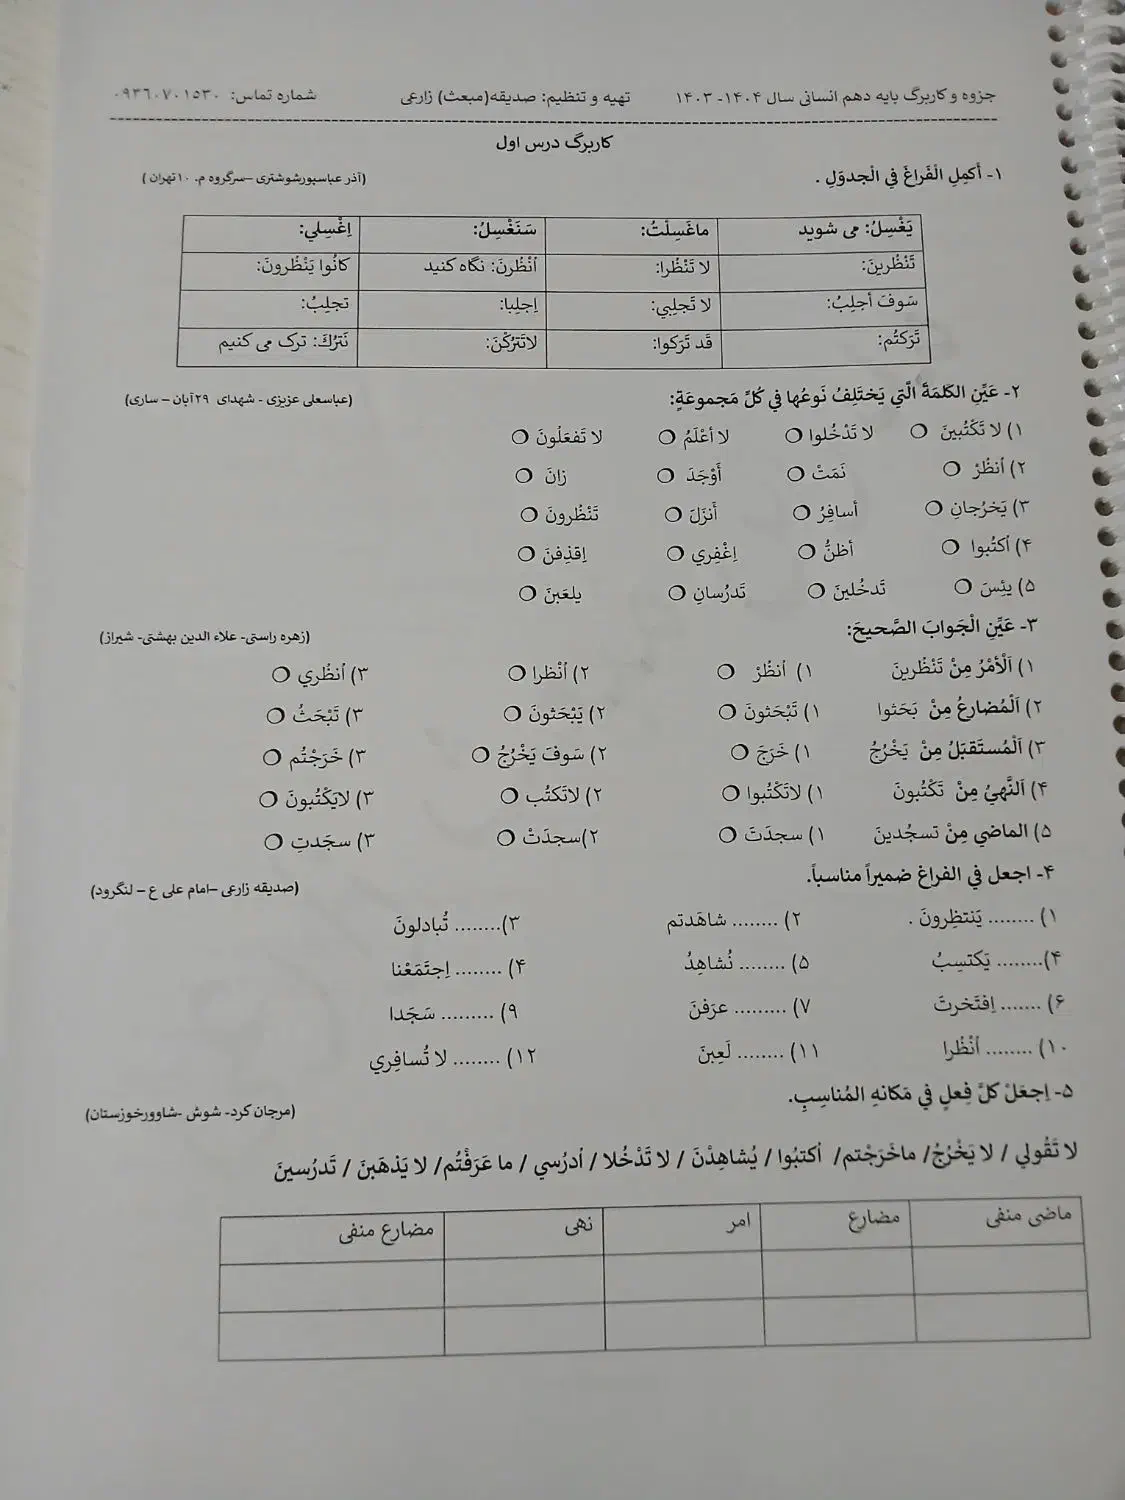 جزوه و کاربرگ پایه دهم انسانی سال ۱۴۰۴- ۱۴۰۳ تهیه و تنظیم: صدیقه(مبعث) زارعی شماره تماس: ۰۹۳۶۰۷۰۱۵۳۰
کاربرگ درس اول
۱- أكمِلِ الْفَراغَ في الْجدوَلِ . (آذر عباسپورشوشتری –سرگروه م. ۱۰تهران )
يَغْسِلُ: می شوید ماغَسِلْتُ: سَنَغْسِلُ: اِغْسِلي:
تَنْظُرينَ: لا تَنْظُرا: اُنْظُرنَ: نگاه کنید كانُوا يَنْظُرونَ:
سَوفَ أجلِبُ: لا تَجلِبي: اِجلِبا: تجلِبُ:
تَرَكتُم: قَد تَرَكوا: لاتَترُكْنَ: نَترُكَ: ترک می کنیم
۲- عَيِّنِ الكَلمَةَ الَّتي يَختَلِفُ نَوعُها في كُلِّ مَجموعَةٍ: (عباسعلی عزیزی - شهدای ۲۹آبان – ساری)
۱) لا تَكْتُبينَ لا تَدْخُلوا لا أعْلَمُ لا تَفعَلُونَ
۲) اُنظُرْ نَمَتْ أَوْجَدَ زانَ
۳) يَخرُجانِ أسافِرُ أَنزَلَ تَنْظُرونَ
۴) اُكتُبوا أظنُّ اِغْفِري اِقذِفنَ
۵) يئِسَ تَدخُلينَ تَدرُسانِ يلعَبنَ
۳- عَيِّنِ الْجَوابَ الصَّحيحَ: (زهره راستی- علاء الدین بهشتی- شیراز)
۱) اَلْأمْرُ مِنْ تَنْظُرينَ ۱) اُنظُرْ ۲) اُنْظرا ۳) اُنظُري
۲) اَلْمُضارِعُ مِنْ بَحَثوا ۱) تَبْحَثونَ ۲) يَبْحَثونَ ۳) تَبْحَثُ
۳) اَلْمُستَقبَلُ مِنْ يَخْرُجُ ۱) خَرَجَ ۲) سَوفَ يَخْرُجُ ۳) خَرَجْتُم
۴) اَلنَّهيُ مِنْ تَكْتُبونَ ۱) لاتَكْتُبوا ۲) لاتَكتُب ۳) لايَكْتُبونَ
۵) الماضي مِنْ تسجُدينَ ۱) سجدَتَ ۲)سجدَتْ ۳) سجَدتِ
۴- اجعل في الفراغ ضميراً مناسباً. (صدیقه زارعی –امام علی ع – لنگرود)
۱) ........ يَنتظِرونَ . ۲) ........ شاهَدتم ۳)........ تُبادلونَ
۴)........ يَكتسِبُ ۵) ........ نُشاهِدُ ۴) ........ اِجتَمَعْنا
۶) ....... اِفتَخرتَ ۷) ......... عرَفنَ ۹) ......... سَجَدا
۱۰) ........ اُنْظُرا ۱۱) ........ لَعِبنَ ۱۲) ........ لا تُسافِري
۵- اِجعَلْ كلَّ فِعلٍ في مَكانهِ المُناسِبِ. (مرجان کرد- شوش -شاوورخوزستان)
لا تَقُولي / لا يَخْرُجُ/ ماخَرَجْتم/ اُكتبُوا / يُشاهِدْنَ / لا تَدْخُلا / اُدرُسي / ما عَرَفْتُم/ لا يَذهَبنَ / تَدرُسينَ
ماضی منفی مضارع امر نهی مضارع منفی